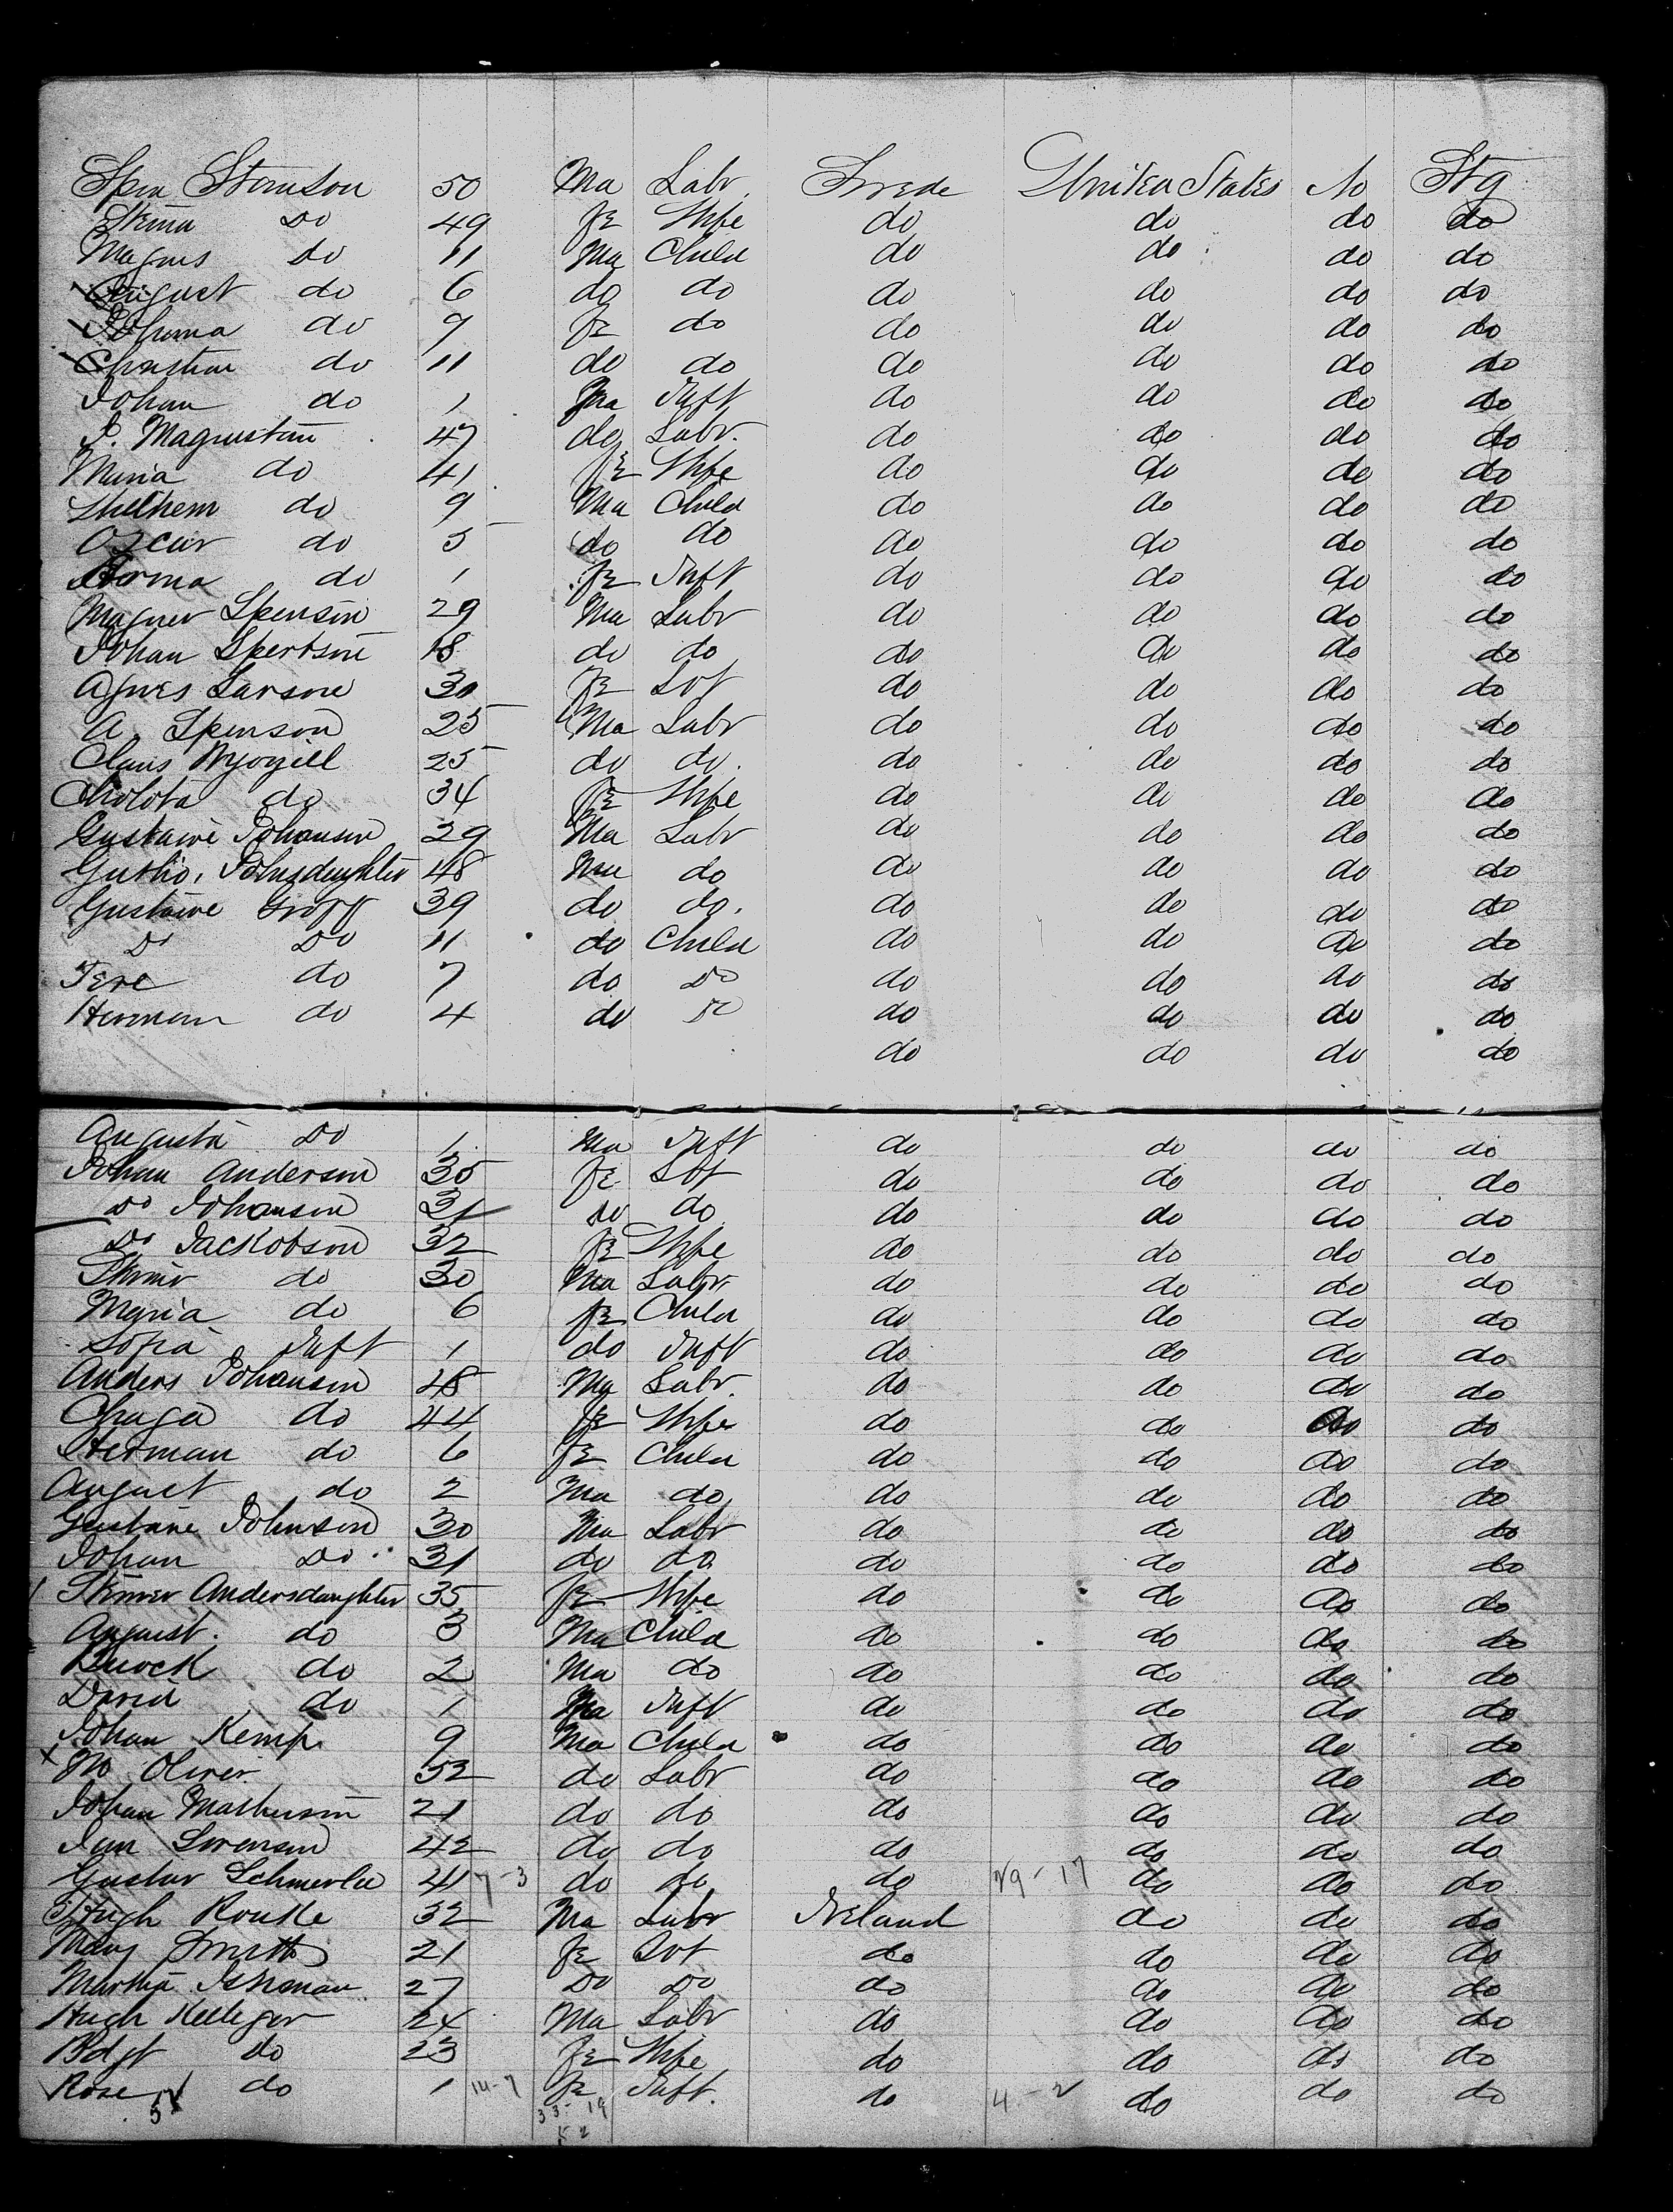 Spen Stomson 50 Ma Labr Swede United States No Stg
Stema Do 49 Fe Wife do do do do
Magnus Do 11 Ma Child do do do do
August do 6 do do do do do do
Johanna do 9 Fe do do do do do
Christian do 11 do do do do do do
Johan do 1 Ma Inft do do do do
P. Magnustan 47 do Labr. do do do do
Maria do 41 Fe Wife do do do do
Wilhem do 9 Ma Child do do do do
Oscar do 5 do do do do do do
do 1 Fe Inft do do do do
Magner Spenson 29 Ma Labr do do do do
Johan Spertson 18 do do do do do do
Agnes Larsone 30 Fe Svt do do do do
A. Spenson 25 Ma Labr do do do do
Claus 25 do do. do do do do
do 34 Fe Wife do do do do
Gustawe Johansen 29 Ma Labr do do do do
Johnsdaughter 48 Ma do do do do do
Gustawe 39 do do. do do do do
Do Do 11 do Child do do do do
do 7 do Do do do do do
Herman do 4 do Do do do do do
do do do do
Augusta Do 1 Ma Inft do do do do
Johan Anderson 35 Fe Svt do do do do
Do Johanson 31 do do do do do do
Do Jackobson 32 Fe Wife do do do do
do 30 Ma Labr do do do do
Myria do 6 Fe Child do do do do
Sofia Inft 1 do Inft do do do do
Anders Johansen 48 Ma Labr. do do do do
do 44 Fe Wife do do do do
Herman do 6 Fe Child do do do do
August do 2 Ma do do do do do
Gustave Johnson 30 Ma Labr do do do do
Johan Do 31 do do do do do do
Andersdaughter 35 Fe Wife do do do do
August. do 3 Ma Child do do do do
do 2 Ma do do do do do
David do 1 Ma Inft do do do do
Johan Kemp 9 Ma Child do do do do
x Oliver 52 do Labr do do do do
Johan Matherson 21 do do do do do do
Jan Sorenson 42 do do do do do do
Gustav Schmerla 41 7-3 do do do 29-17 do do do
Hugh Rouke 32 Ma Labr Ireland do do do
Mary Smith 21 Fe Svt do do do do
Martha Ishman 27 Do Do do do do do
Hugh Kelleger 24 Ma Labr do do do do
Bdgt do 23 Fe Wife do do do do
Rose do 1 14-7 Fe Inft. do 4-2 do do do
33-19
52